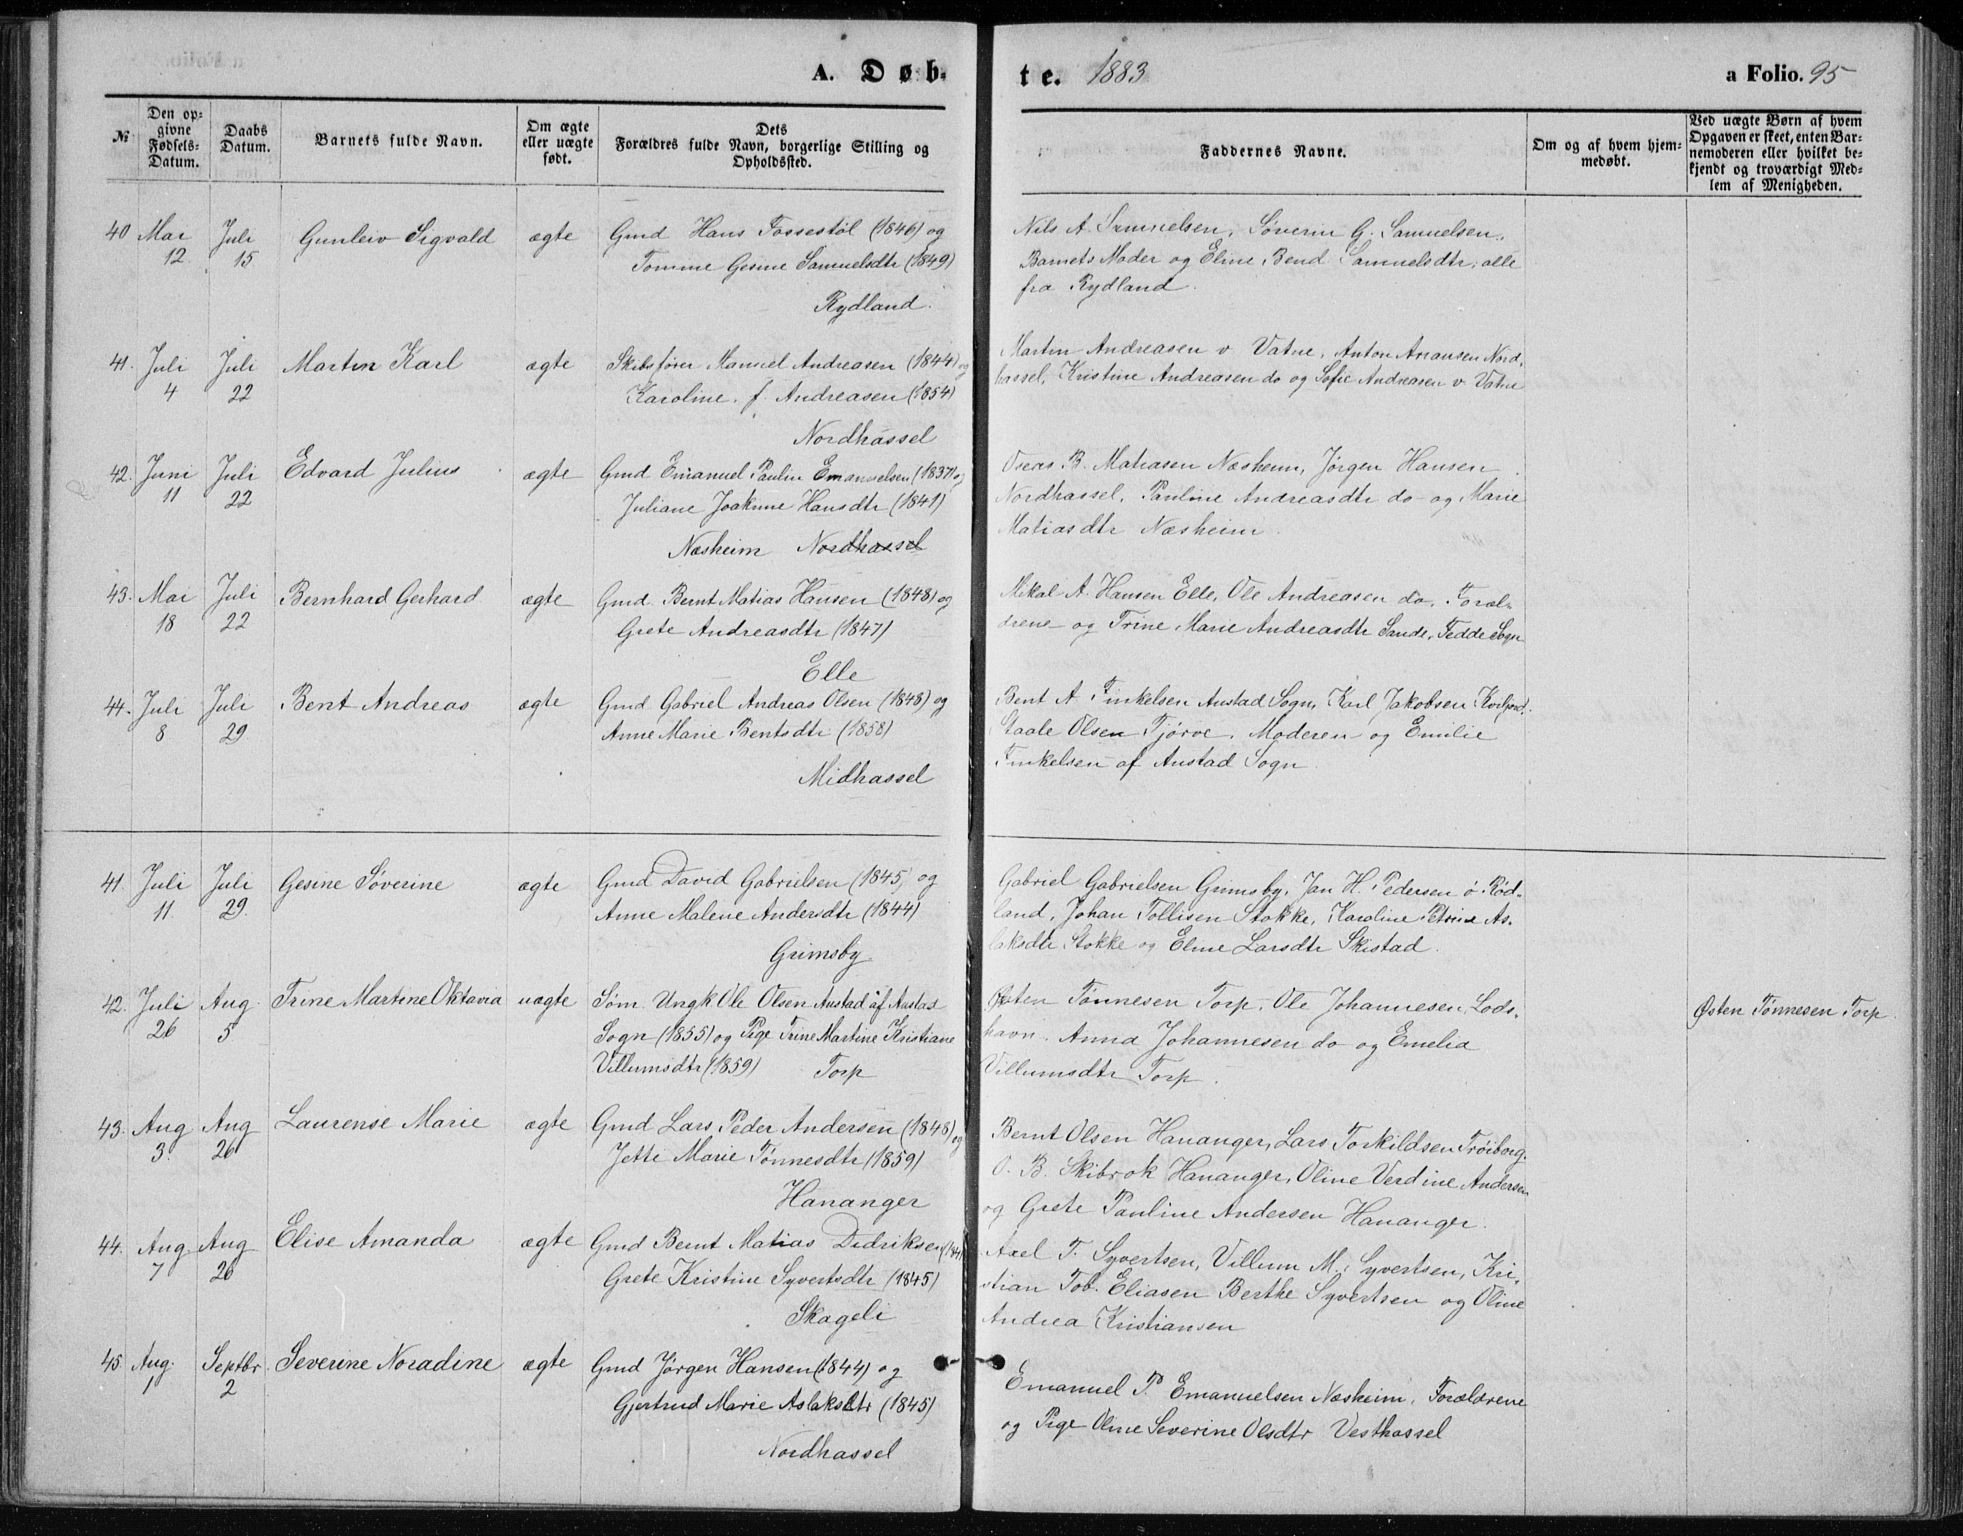 A. Døb-
te. 1883
a Folio. 95
№
Den op-
givne
Fødsels-
Datum.
Daabs
Datum.
Barnets fulde Navn.
Om ægte
eller uægte
født.
Dets
Forældres fulde Navn, borgerlige Stilling og
Opholdssted.
Faddernes Navne.
Om og af hvem hjem-
medøbt.
Ved uægte Børn af hvem
Opgaven er skeet, enten Bar-
nemoderen eller hvilket be-
kjendt og troværdigt Med-
lem af Menigheden.
40 Mai 12 Juli 15 Gunleiv Sigvald ægte
Gmd Hans Fossestöl (1846) og
Tomine Gesine Samuelsdtr (1849)
Rydland.
Nils A. Samuelsen, Søverin G. Samuelsen,
Barnets Moder og Eline Bend. Samuelsdtr, alle
fra Rydland.
41. Juli 4 Juli 22 Martin Karl ægte
Skibsfører Samuel Andreasen (1844) og
Karoline f. Andreasen (1854)
Nordhassel
Martin Andreasen v. Vatne, Anton Ariansen Nord-
hassel, Kristine Andreasen do og Sofie Andreasen v. Vatne
42. Juni 11 Juli 22 Edvard Julius ægte
Gmd Emanuel Paulin Emanuelsen (1837) og
Juliane Joakime Hansdtr (1841)
Næsheim Nordhassel
B. Matiasen Næsheim, Jørgen Hansen
Nordhassel, Pauline Andreasdtr do og Marie
Matiasdtr Næsheim.
43. Mai 18 Juli 22 Bernhard Gerhard ægte
Gmd. Bernt Matias Hansen (1848) og
Grete Andreasdtr (1847)
Elle
Mikal A. Hansen Elle, Ole Andreasen do, Foræl-
drene og Trine Marie Andreasdtr Sande, Fedde Sogn
44. Juli 8 Juli 29 Bent Andreas ægte
Gmd Gabriel Andreas Olsen (1848) og
Anne Marie Bentsdtr (1858)
Midhassel
Bent A. Finkelsen Austad Sogn, Karl Jakobsen
Staale Olsen Tjørve, Moderen og Emilie
Finkelsen af Austad Sogn.
41. Juli 11. Juli 29. Gesine Søverine ægte
Gmd David Gabrielsen (1845) og
Anne Malene Andersdtr (1844)
Grimsby.
Gabriel Gabrielsen Grimsby, Jan H. Pedersen ö. Rød-
land, Johan Tollisen Stokke, Karoline Petrine As-
laksdtr Stokke og Eline Larsdtr Skistad.
42. Juli 26 Aug. 5 Trine Martine Oktavia uægte
Søm. Ungk Ole Olsen Austad af Austad
Sogn (1855) og Pige Trine Martine Kristiane
Villumsdtr (1859) Torp
Østen Tønnesen Torp, Ole Johannesen, Lods-
havn. Anna Johannesen do og Emelia
Villumsdtr Torp.
Østen Tønnesen Torp.
43. Aug 3. Aug 26 Laurense Marie ægte
Gmd Lars Peder Andersen (1848) og
Jette Marie Tönnesdtr (1859)
Hananger
Bernt Olsen Hananger, Lars Torkildsen Frøiborg.
O. B. Skibrok Hananger, Oline Verdine Andersen
og Grete Pauline Andersen Hananger.
44. Aug 7 Aug 26 Elise Amanda ægte
Gmd Bernt Matias Didriksen
Grete Kristine Syvertsdtr (1845)
Skageli
Axel T. Syvertsen, Villum M. Syvertsen, Kri-
stian Tob. Eliasen Berthe Syvertsen og Oline
Andrea Kristiansen
45 Aug. 1 Septbr. 2 Severine Noradine ægte
Gmd Jørgen Hansen (1844) og
Gjertrud Marie Aslaksdtr (1845)
Nordhassel
Emanuel P. Emanuelsen Næsheim, Forældrene
og Pige Oline Severine Olsdtr Vesthassel